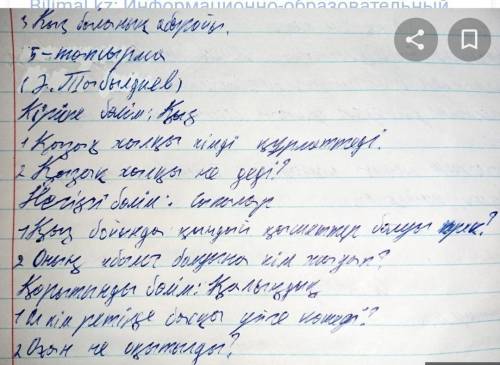 Bilimal.kz: Информационно-образовательный
3 Қыз баланың абыройы.
5-тапсырма
(Ә. Табылдиев)
Кіріспе бөлім: Қыз
1 Қазақ халқы кімді құрметтеді.
2 Қазақ халқы не деді?
Негізгі бөлім:
1 Қыз бойында қандай қасиеттер болуы керек?
2 Оның болуына кім
Қорытынды бөлім: Қалыңдық
1 Ол кім ретінде басқа үйге көшеді?
2 Оған не оқытылды?